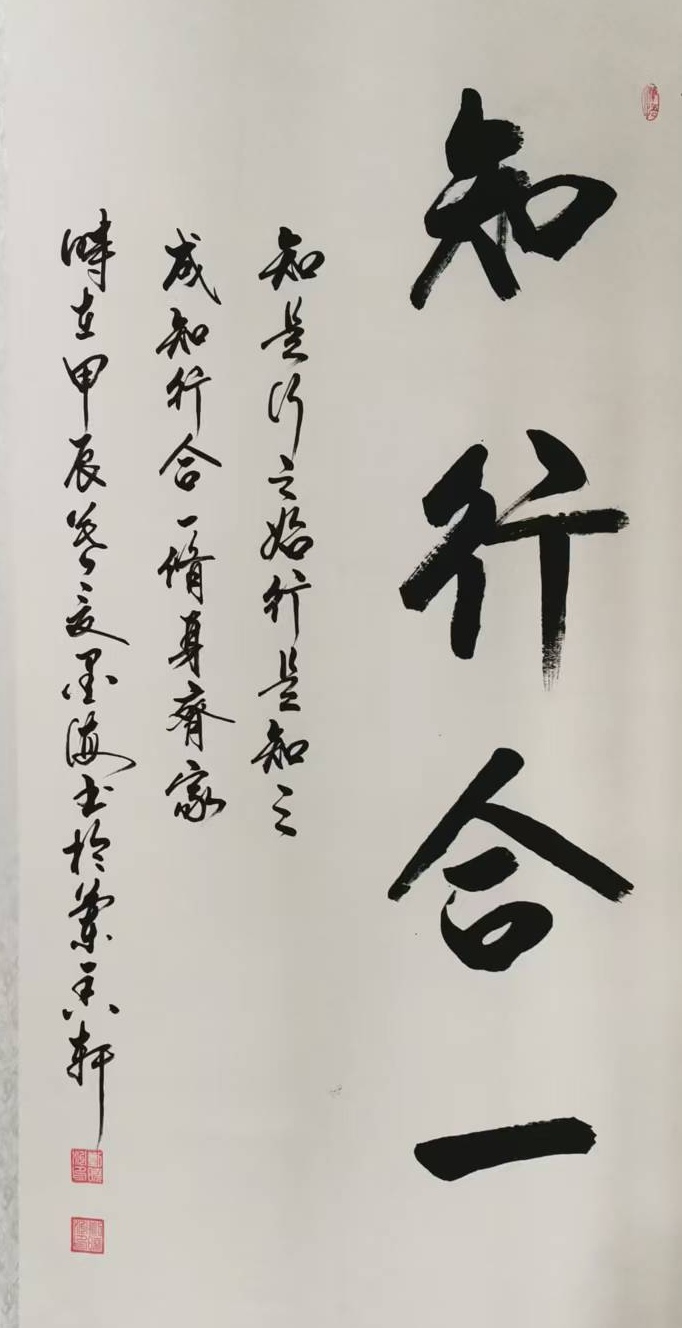 知行合一
知是行之始行是知之
成知行合一脩身齊家
時在甲辰春之夏墨海书於蘭香軒